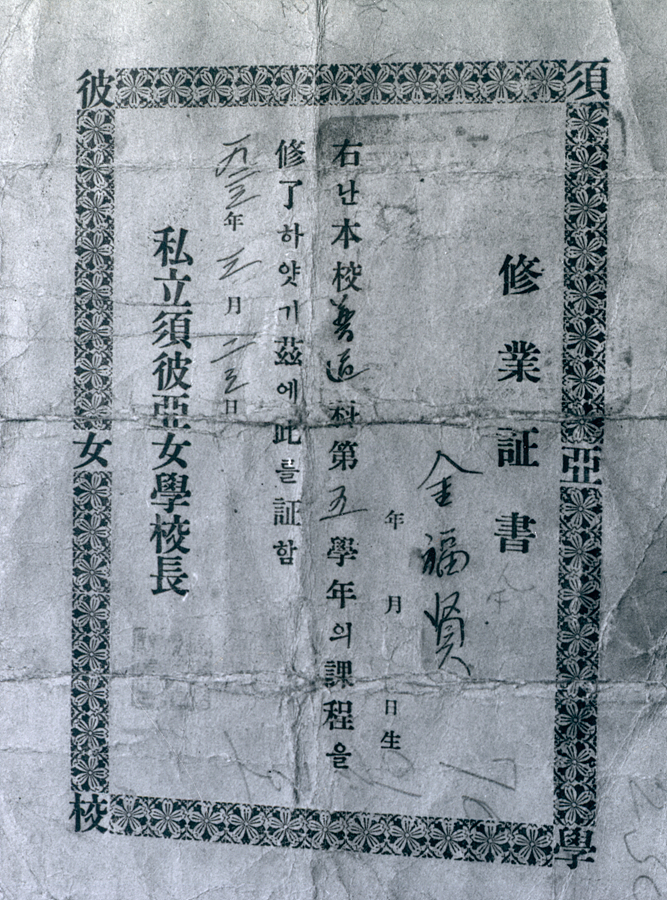 須彼亞女學校
修業証書
金福賢
年月日生
右난本校普通科第五學年의課程을
修了하얏기茲에此를証함
九二三年三月二三日
私立須彼亞女學校長